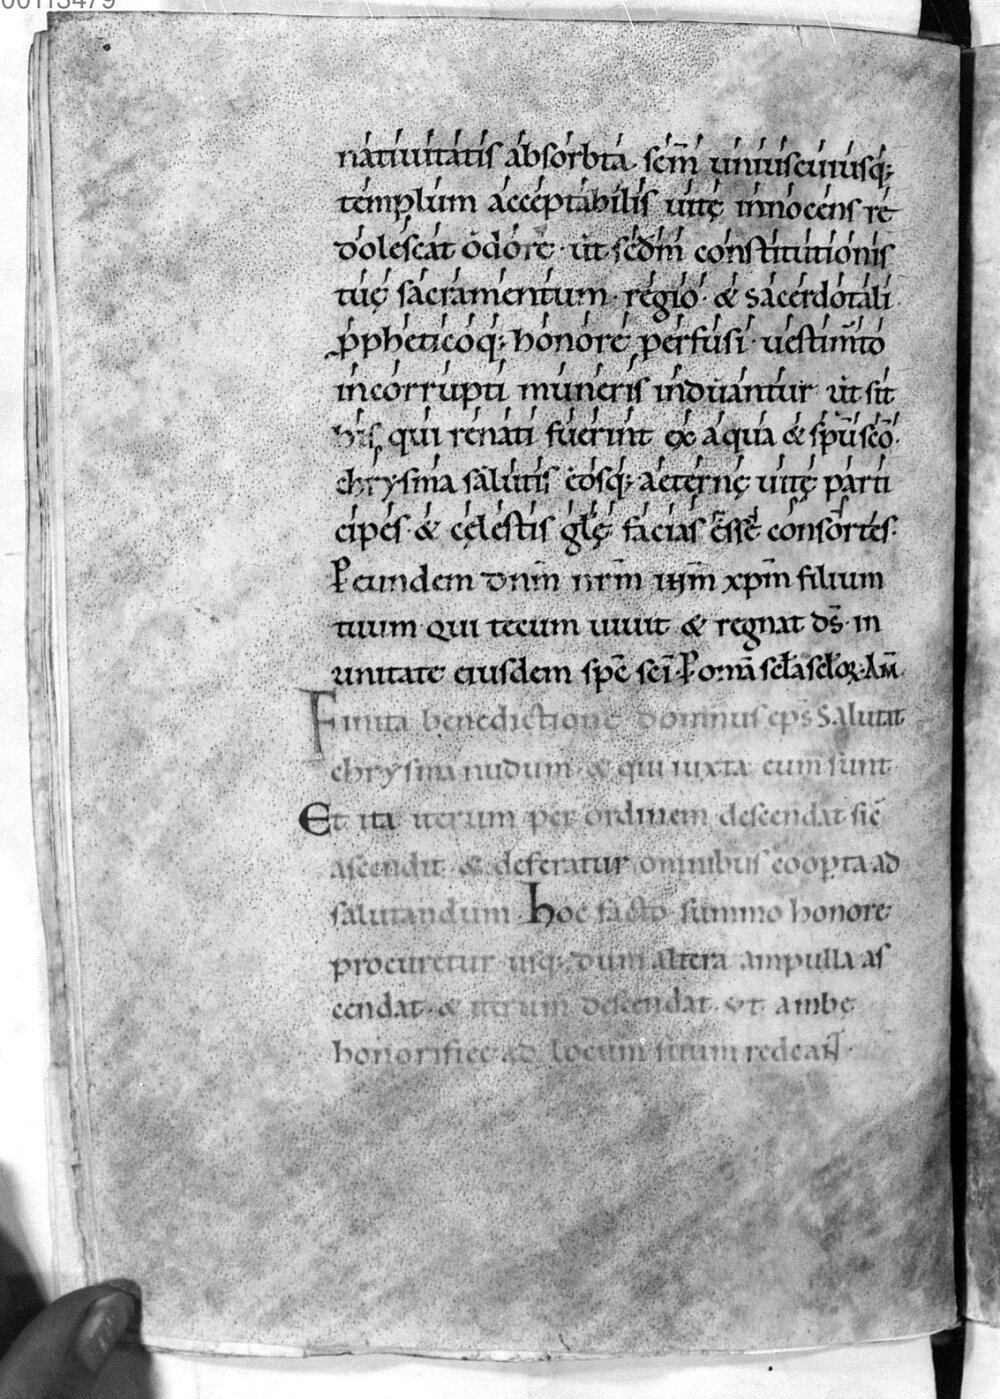 00113479
natiuitatis absorbta. scm̄ uniuscuiusq;
templum acceptabilis uitę innocens re
dolescat odore· ut secdm̄ constitutionis
tuę sacramentum· regio· & sacerdotali
ꝓpheticoq; honore perfusi· uestim̄to
incorrupti muneris induantur ut sit
his qui renati fuerint ex aqua & spū scō·
chrysma salutis eosq; aeternę uitę parti
cipes & cęlestis glę̄ facias esse consortes·
P eundem dnm̄ nr̄m ihm̄ xpm̄ filium
tuum qui tecum uiuit & regnat ds̄· in
unitate eiusdem spc̄ sci· P om̄a scła scłoꝝ· Am̄
Finita benedictione domnus eps̄ salutat
chrysma nudum· & qui iuxta eum sunt·
Et ita iterum per ordinem descendat sic̄
ascendit· & deferatur omnibus coopta ad
salutandum· hoc facto summo honore
procuretur usq; dum altera ampulla as
cendat· & iterum descendat· ut ambę
honorifice ad locum suum redeant·